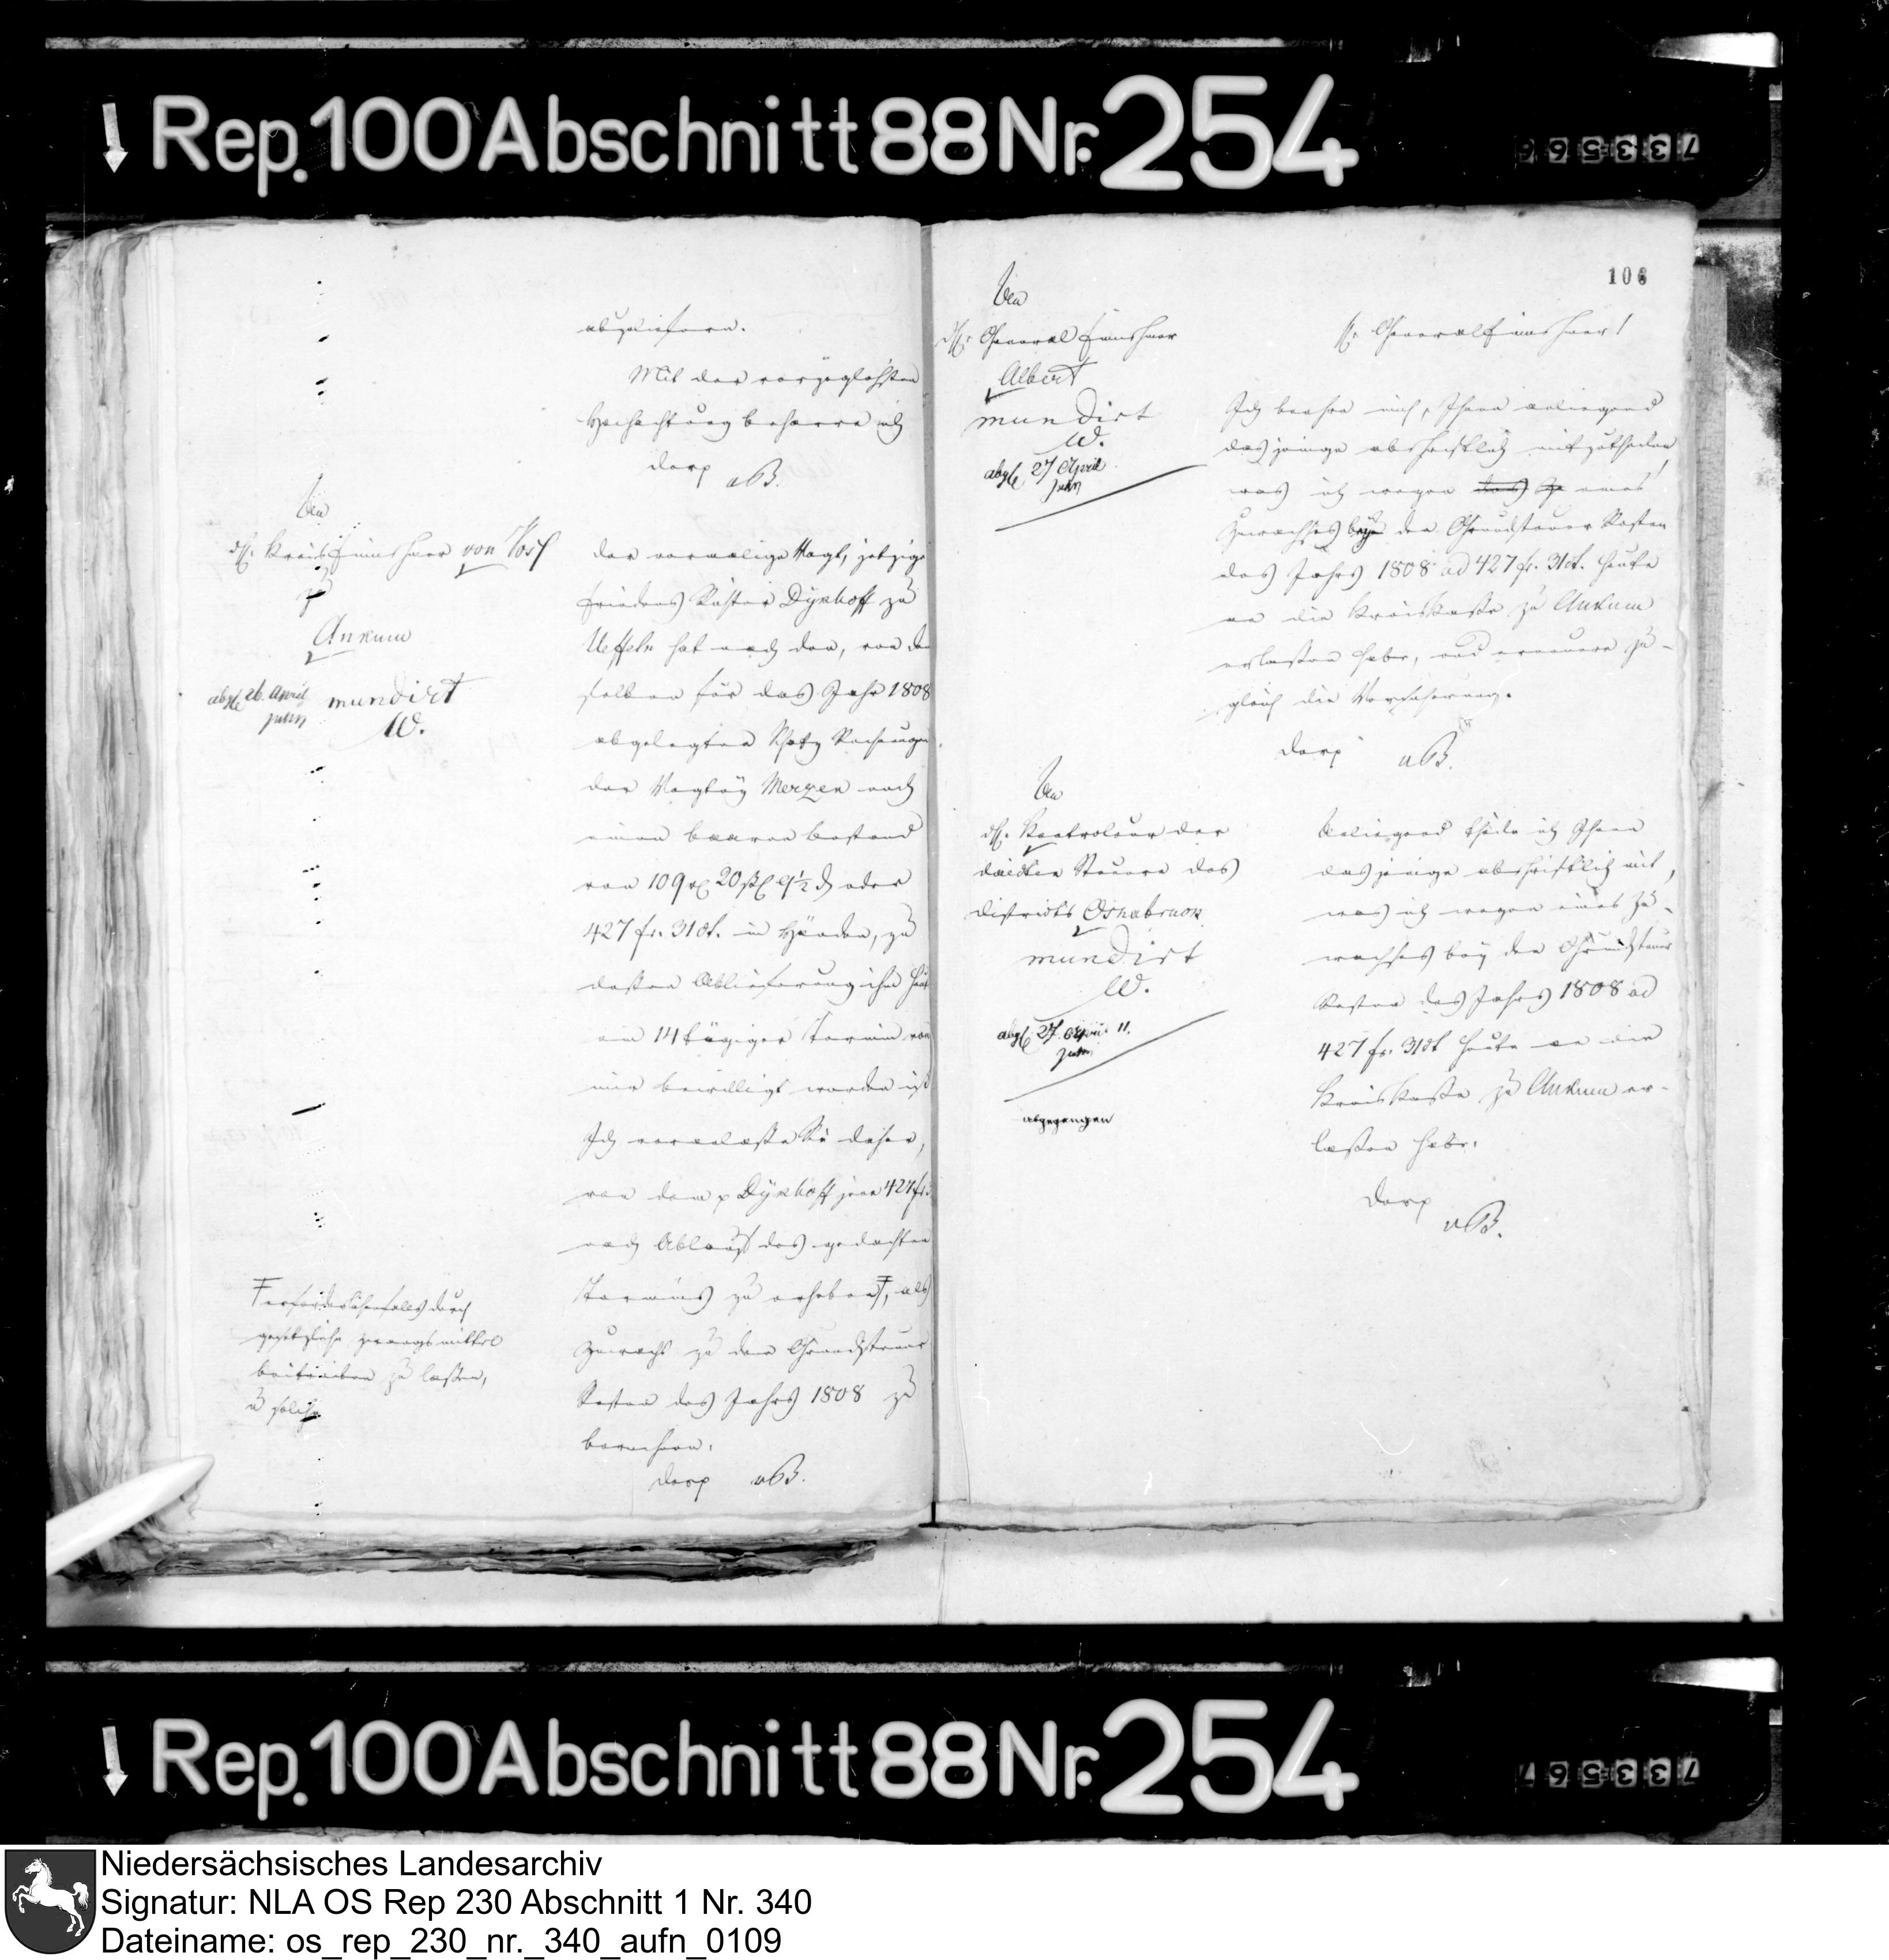 Rep. 100 Abschnitt 88 Nr. 254
733566
106
abzuliefern.
Mit der vorzüglichsten
Hochachtung beharre ich
dorp vB.
An
den H. Kreis Einnehmer von Voss
zu
Ankum
abgs 26. April
mundirt
W.
Der vormalige Vogt, jetzige
Friedens Richter Dyckhoff zu
Ueffeln hat nach der, von dem
selben für das Jahr 1808
abgelegten Schatz Rechnungen
der Vogtey Merzen noch
einen baaren Bestand
von 109 rt 20 ßl 9½ d oder
427 fr. 31 ct. in Händen, zu
dessen Ablieferung ihm heute
ein 14 tägiger Termin von
mir bewilligt worden ist
Ich veranlaße Sie daher,
von dem p Dyckhoff jene 427 fr. 3
nach Ablauf des gedachten
Termins zu erheben F, als
Zuwachs zu den Grundsteuer
Resten des Jahrs 1808 zu
berechnen.
dorp vB.
F erforderlichenfalls durch
gesetzliche Zwangsmittel
beitreiben zu laßen,
u solche
An
den H. General Einnehmer
Albert
mundirt
W.
abgs 27 April
H. Generaleinnehmer!
Ich beehre mich, Ihnen anliegend
dasjenige abschriftlich mitzutheilen
was ich wegen eines
Zuwachses bey den Grundsteuer Resten
des Jahrs 1808 ad 427 fr. 31 ct. heute
an die Kreiskaße zu Ankum
erlassen habe, und erneuere zu-
gleich die Versicherung.
dorp vB.
An
den H. Kontroleur der
direkten Steuern des
Districts Osnabruck
mundirt
W.
abgs. 27. April 11.
abgegangen
Anliegend theile ich Ihnen
dasjenige abschriftlich mit,
was ich wegen eines Zu-
wachses bey den Grundsteuer
Resten des Jahrs 1808 ad
427 fr. 31 ct heute an die
Kreiskaße zu Ankum er-
laßen habe.
dorp
vB.
Rep. 100 Abschnitt 88 Nr. 254
733567
Niedersächsisches Landesarchiv
Signatur: NLA OS Rep 230 Abschnitt 1 Nr. 340
Dateiname: os_rep_230_nr._340_aufn_0109